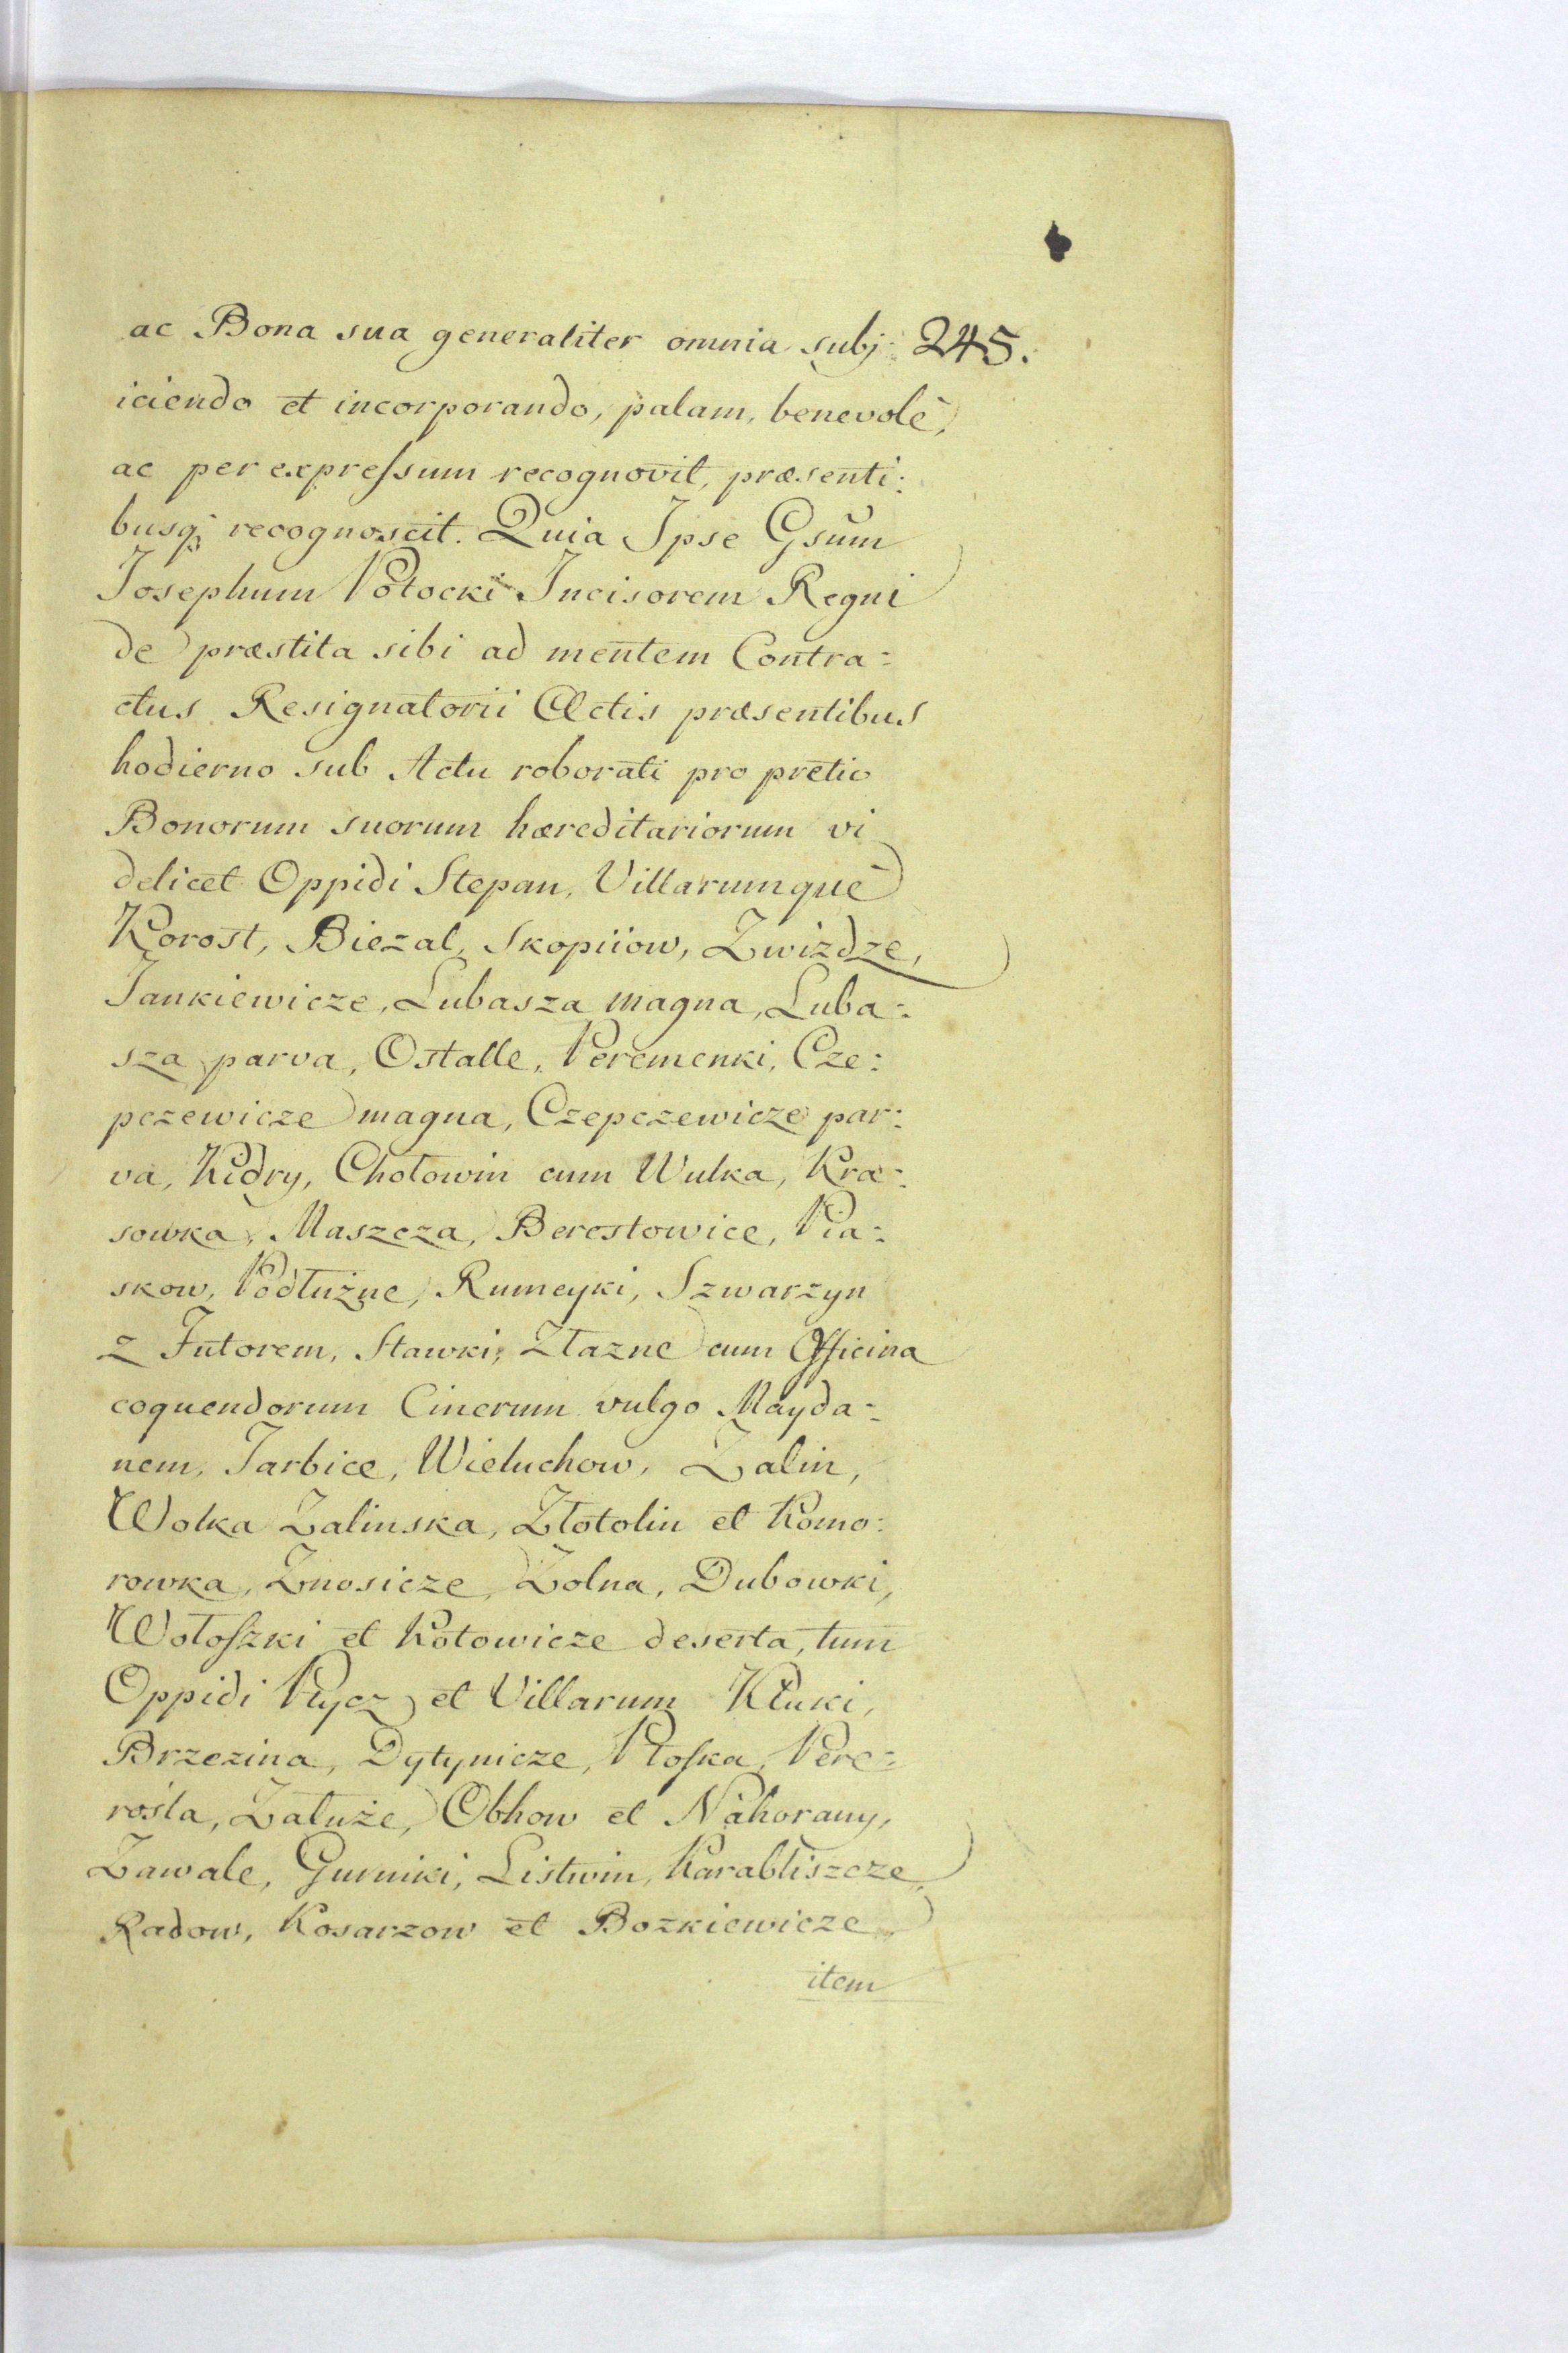 ac Bona sua generaliter omnia subj: 245.
iciendo et incorporando, palam, benevolè,
ac per expressum recognovit, præsenti:
busq; recognoscit. Quia Ipse Gsum
Josephum Potocki Incisorem Regni
de præstita sibi ad mentem Contra:
ctus Resignatorii Actis præsentibus
hodierno sub Actu roborati pro pretio
Bonorum suorum hæreditariorum vi
delicet Oppidi Stepan, Villarumquè
Korost, Biezal, Skopiiow, Zwizdze,
Jankiewicze, Lubasza magna, Luba:
sza parva, Ostalle, Peremenki, Cze:
pczewicze magna, Czepczewicze par:
va, Kidry, Chołowin cum Wulka, Kra:
sowka, Maszcza, Berestowice, Pia:
skow, Podłużne, Rumeyki, Szwarzyn
z Futorem, Stawki, Złazne cum Officina
coquendorum Cinerum vulgo Mayda:
nem, Jarbice, Wieluchow, Zalin,
Wolka Zalinska, Złotolin et Komo:
rowka, Znosicze, Zolna, Dubowki,
Wołoszki et Kotowicze deserta, tum
Oppidi Ptycz et Villarum Kłuki,
Brzezina, Dytynicze, Płoska, Pere:
rosła, Załuże, Obhow et Nahorany,
Zawale, Gurniki, Listwin, Karabliszcze
Radow, Kosarzow et Bozkiewicze
item